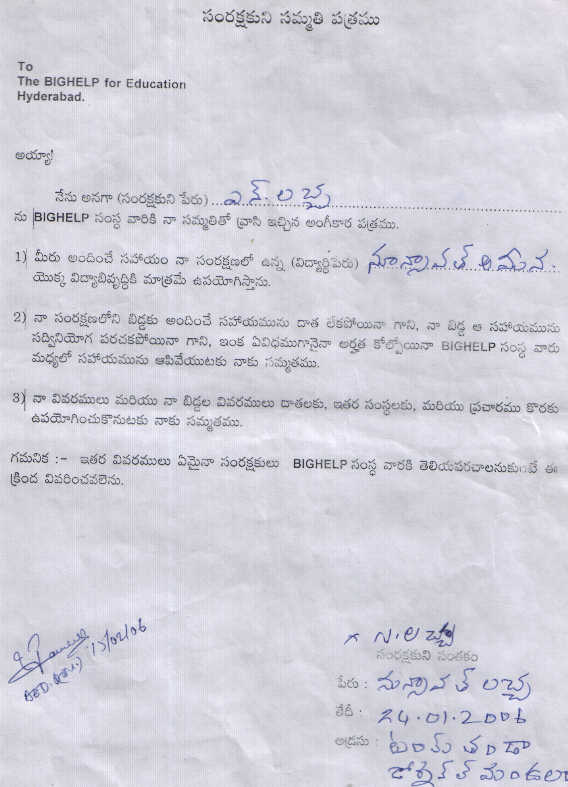 సంరక్షకుని సమ్మతి పత్రము
To
The BIGHELP for Education
Hyderabad.
అయ్యా!
నేను అనగా (సంరక్షకుని పేరు) ఎన్. లచ్ఛ
ను BIGHELP సంస్థ వారికి నా సమ్మతితో వ్రాసి ఇచ్చిన అంగీకార పత్రము.
1) మీరు అందించే సహాయం నా సంరక్షణలో ఉన్న (విద్యార్థిపేరు)
యొక్క విద్యాభివృద్ధికి మాత్రమే ఉపయోగిస్తాను.
2) నా సంరక్షణలోని బిడ్డకు అందించే సహాయమును దాత లేకపోయినా గాని, నా బిడ్డ ఆ సహాయమును
సద్వినియోగ పరచకపోయినా గాని, ఇంక ఏవిధముగానైనా అర్హత కోల్పోయినా BIGHELP సంస్థ వారు
మధ్యలో సహాయమును ఆపివేయుటకు నాకు సమ్మతము.
3) నా వివరములు మరియు నా బిడ్డల వివరములు దాతలకు, ఇతర సంస్థలకు, మరియు ప్రచారము కొరకు
ఉపయోగించుకొనుటకు నాకు సమ్మతము.
గమనిక :- ఇతర వివరములు ఏమైనా సంరక్షకులు BIGHELP సంస్థ వారకి తెలియపరచాలనుకుంటే ఈ
క్రింద వివరించవలెను.
15/02/06
x N. లచ్ఛా
సంరక్షకుని సంతకం
పేరు : నున్సావత్ లచ్ఛ
తేదీ : 24.01.2006
అడ్రసు : తండా